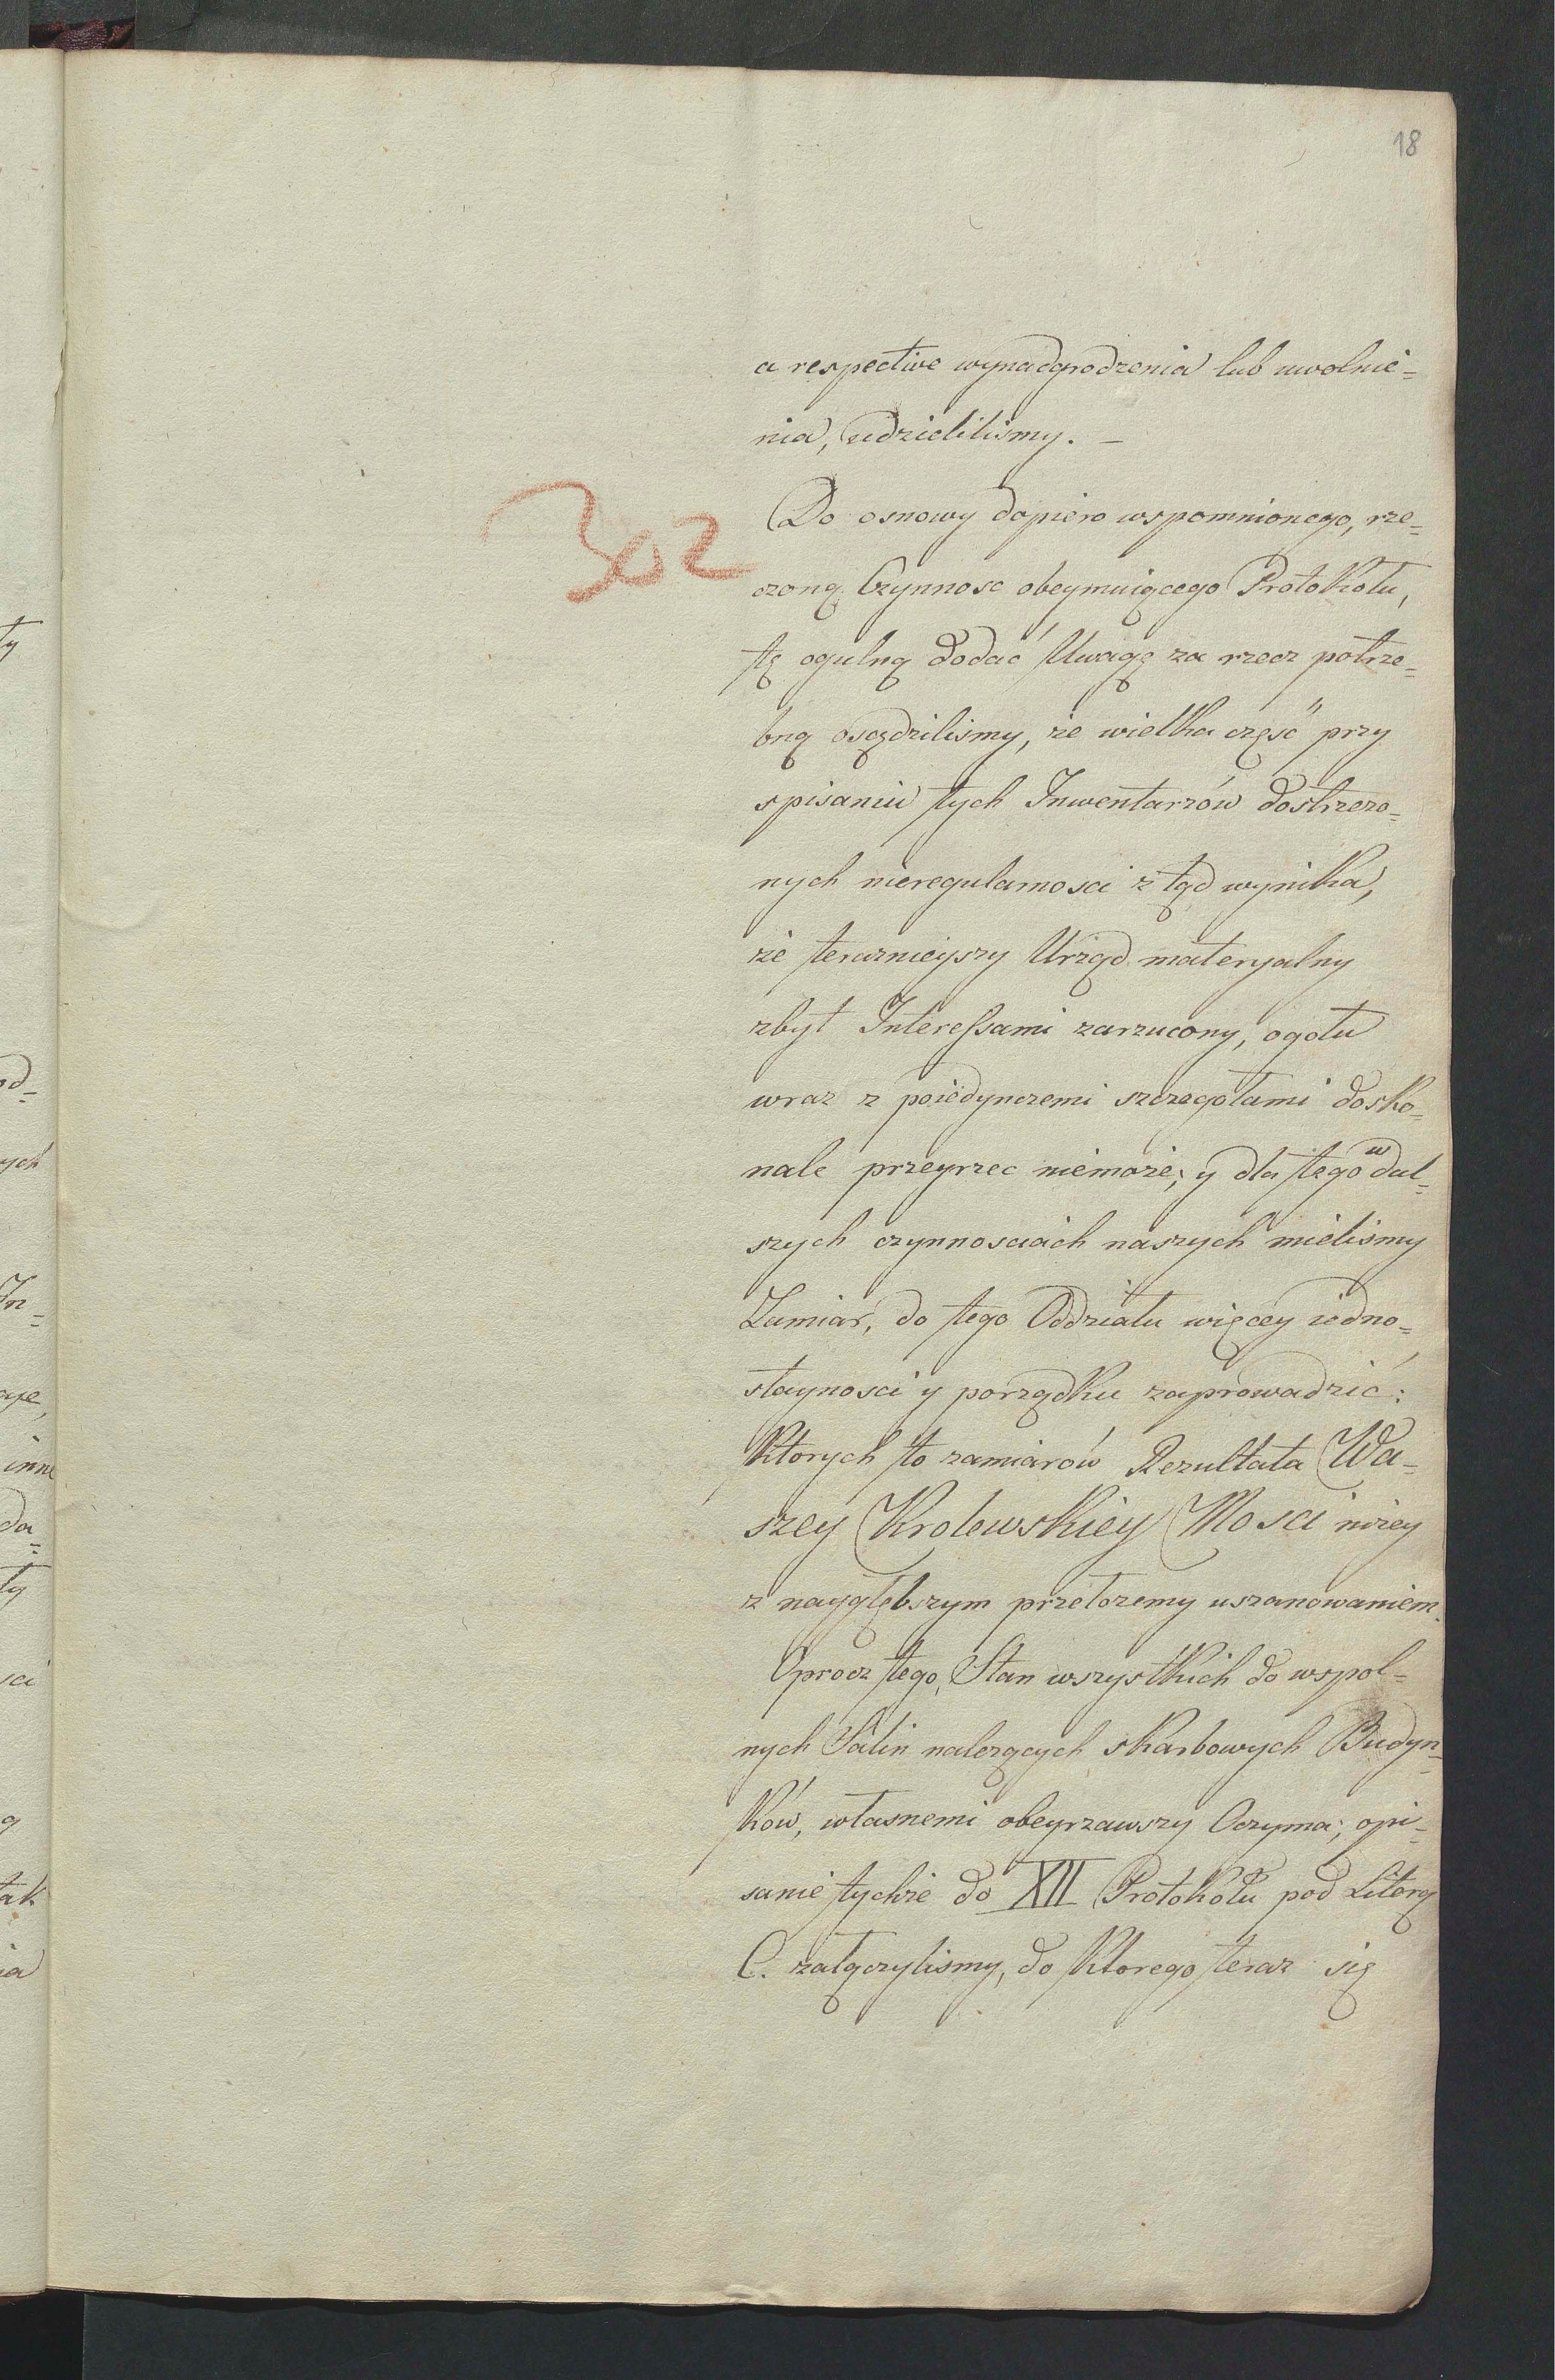 18
a respective wynadgrodzenia lub uwolnie=
nia, udzieliliśmy. –
302
Do osnowy dopiero wspomnionego, rze=
czoną Czynnosc obeymuiącego Protokołu,
tę ogulną dodać Uwagę za rzecz potrze=
bną osądziliśmy, że wielka część przy
spisaniu tych Inwentarzów dostrzezo=
nych nieregularnosci z tąd wynika,
że teraznieyszy Urząd materyalny
zbyt Interessami zarzucony, ogołu
wraz z poiedynczemi szczegołami dosko=
nale przeyrzec niemoże; y dla tego w dal=
szych czynnosciach naszych mieliśmy
Zamiar, do tego Oddziału więcey iedno=
stayności y porządku zaprowadzić:
Ktorych to zamiarów Rezultata Wa=
szey Krolewskiey Mosci niżey
z nayglębszym przełozemy uszanowaniem.
Oprocz tego, Stan wszystkich do wspol=
nych Salin nalezących skarbowych Budyn=
ków, własnemi obeyrzawszy Oczyma, opi=
sanie tychże do XII Protokołu pod Literą
C. załączyliśmy, do Ktorego teraz się
ty
od=
ych
In=
aje,
inne
da=
ty
sci
ą
tak
ia